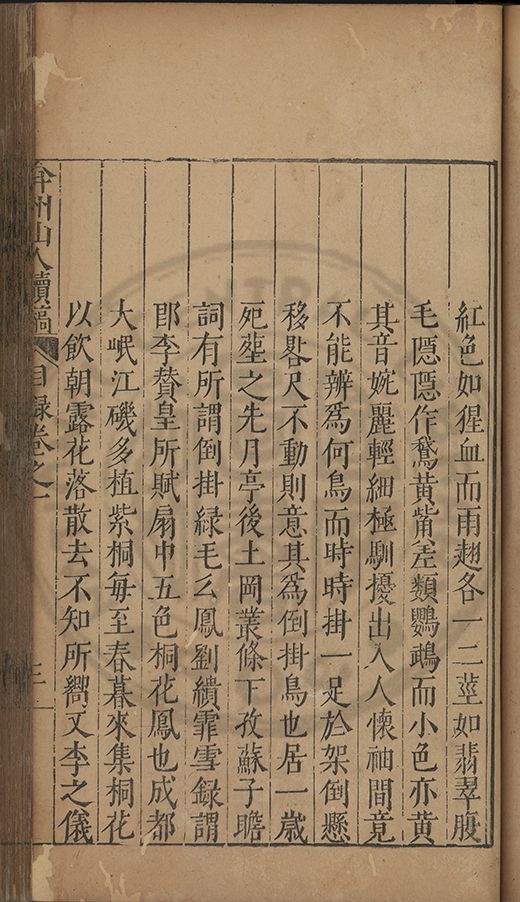 紅色如猩血而雨翅各一二莖如翡翠腹
毛隱隱作鵞黃觜差類鸚鵡而小色亦黃
其音婉麗輕細極馴擾出入人懷袖間竟
不能辨爲何鳥而時時掛一足於架倒懸
移晷尺不動則意其爲倒掛鳥也居一歲
死塟之先月亭後土岡叢條下攷蘇子瞻
詞有所謂倒掛綠毛么鳳劉績霏雪録謂
即李賛皇所賦扇中五色桐花鳳也成都
大岷江磯多植紫桐每至春暮來集桐花
以飲朝露花落散去不知所嚮又李之儀
弇州山人續稿 目録卷之一